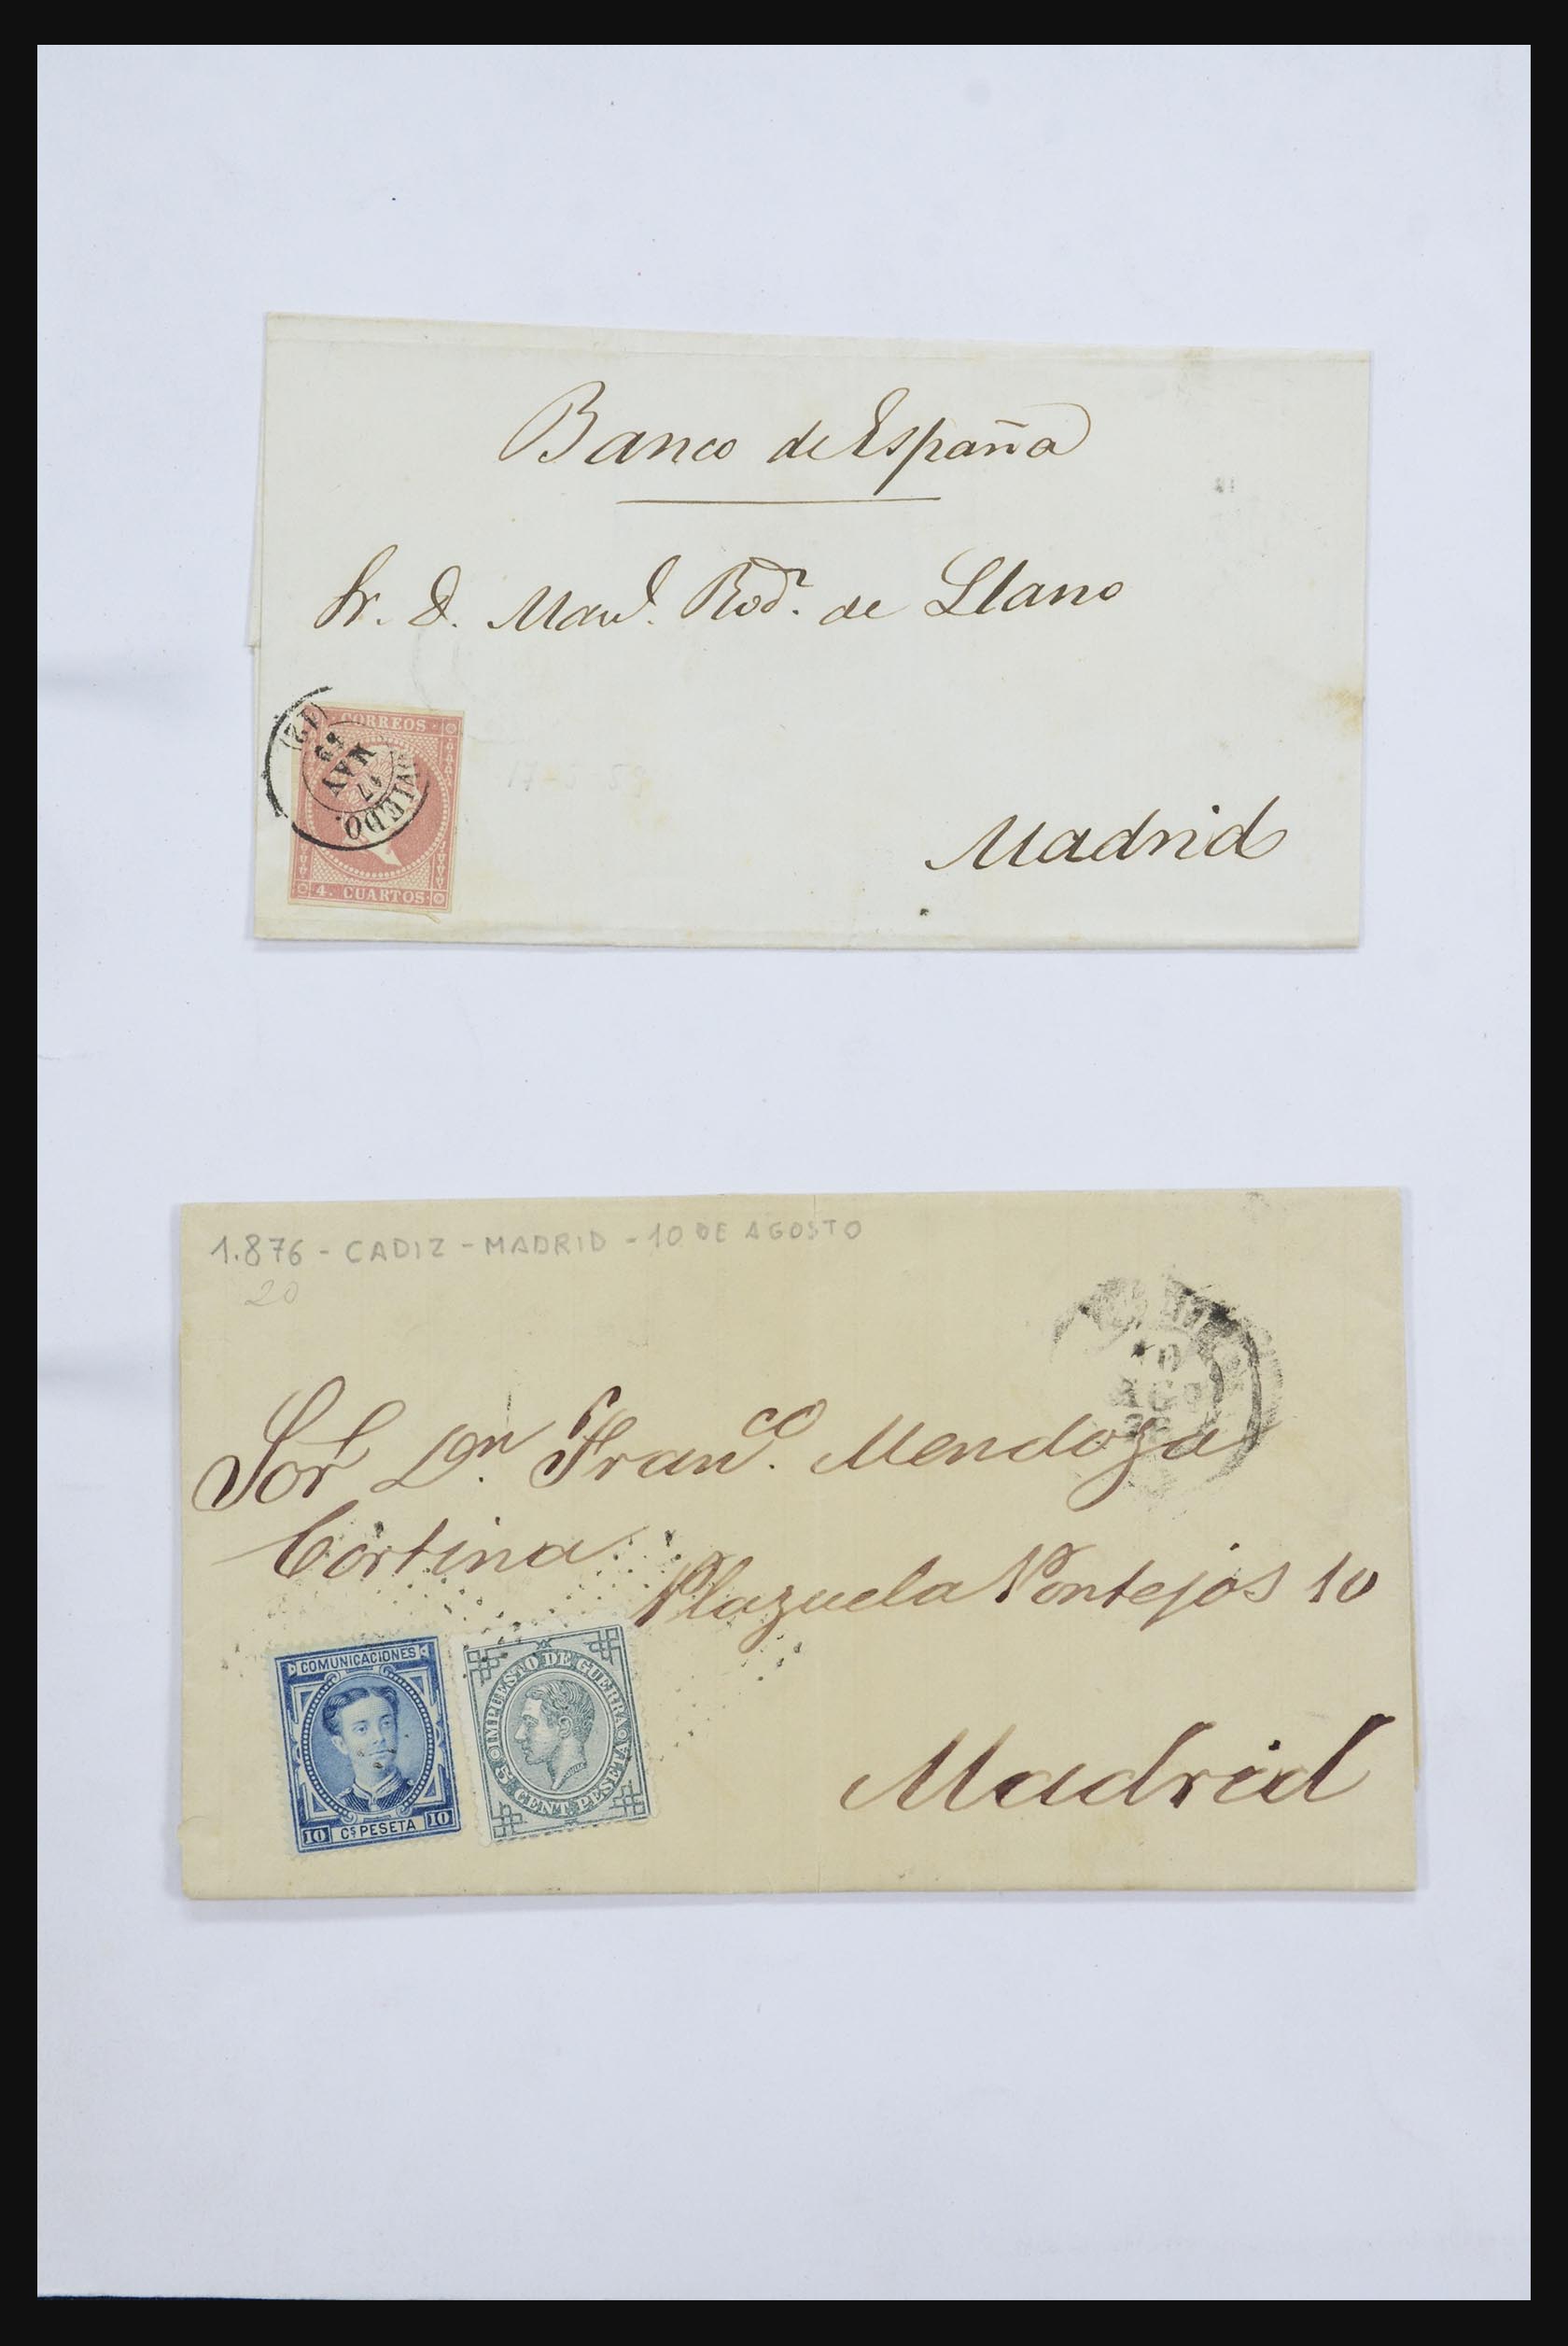 Banco de España
Sr. D. Manl. Rodr. de Llano
CORREOS
4. CUARTOS
OVIEDO.
17
MAY
(12)
Madrid
1.876 - CADIZ - MADRID - 10 DE AGOSTO
20
10
AGO
Sor Dn. Franco. Mendoza
Cortina
Plazuela Pontejos 10
COMUNICACIONES
10 Cs PESETA 10
IMPUESTO DE GUERRA
5 CENT. PESETA
Madrid